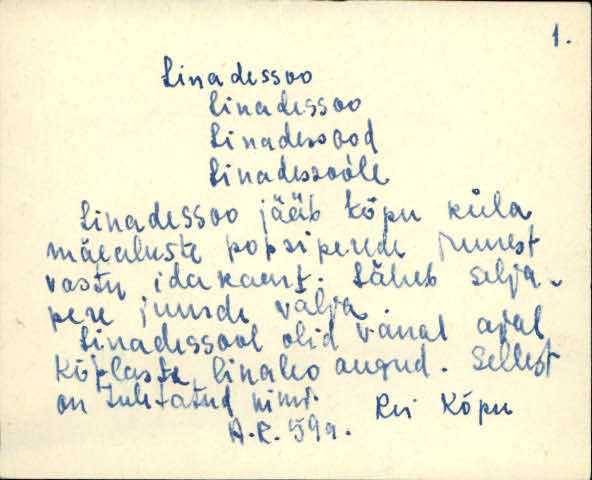 1.
Linadessoo
Linadessoo
Linadessood
Linadessoole
Linadessoo jääb Kõpu küla
mäealuste popsiperede juurest
vastu idakaart. Läheb Selja-
pere juurde välja.
Linadessool olid vanal ajal
Kõplaste linaleo augud. Sellest
on tuletatud nimi.
Rei Kõpu
A.R. 59a.